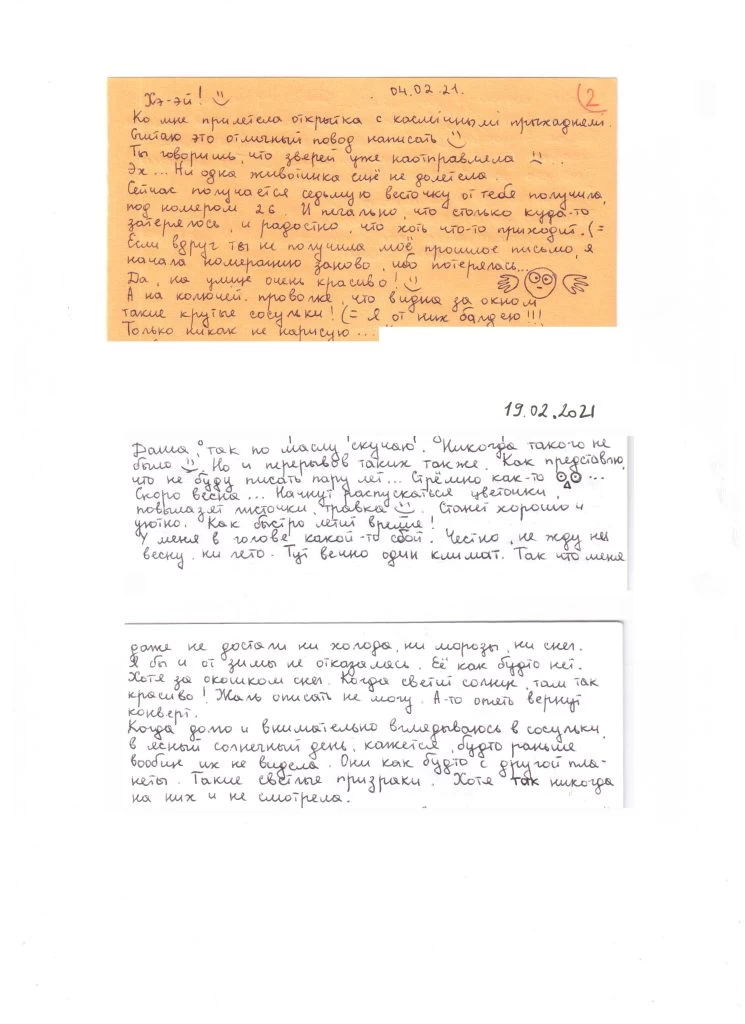 Хэ-эй!
04.02.21.
2
Ко мне прилетела открытка с касмiчнымi прыхаднемi.
Считаю это отличный повод написать
Ты говоришь, что зверей уже наотправляла ...
Эх... Ни одна животинка ещё не долетела.
Сейчас получается седьмую весточку от тебя получила,
под номером 26. И печально, что столько куда-то
затерялось, и радостно, что хоть что-то приходит. (=
Если вдруг ты не получила моё прошлое письмо, я
начала нумерацию заново, ибо потерялась...
Да, на улице очень красиво!
А на колючей проволке, что видна за окном
такие крутые сосульки! (= Я от них балдею!!!
Только никак не нарисую...
19.02.2021
Даша, так по маслу "скучаю". Никогда такого не
было. Но и перерывов таких также. Как представлю,
что не буду писать пару лет... Стрёмно как-то ...
Скоро весна... Начнут распускаться цветочки,
повылазят листочки, травка. Станет хорошо и
уютно. Как быстро летит время!
У меня в голове какой-то сбой. Честно, не жду ни
весну, ни лето. Тут вечно один климат. Так что меня
даже не достали ни холода, ни морозы, ни снег.
Я бы и от зимы не отказалась. Её как будто нет.
Хотя за окошком снег. Когда светит солнце, там так
красиво! Жаль описать не могу. А-то опять вернут
конверт.
Когда долго и внимательно вглядываюсь в сосульки
в ясный солнечный день, кажется, будто раньше
вообще их не видела. Они как будто с другой пла-
неты. Такие светлые призраки. Хотя так никогда
на них и не смотрела.